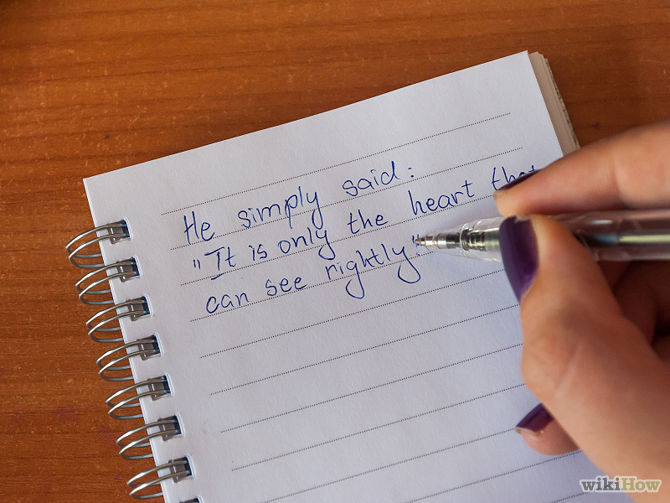 He simply said:
"It is only the heart that
can see rightly"
wikiHow